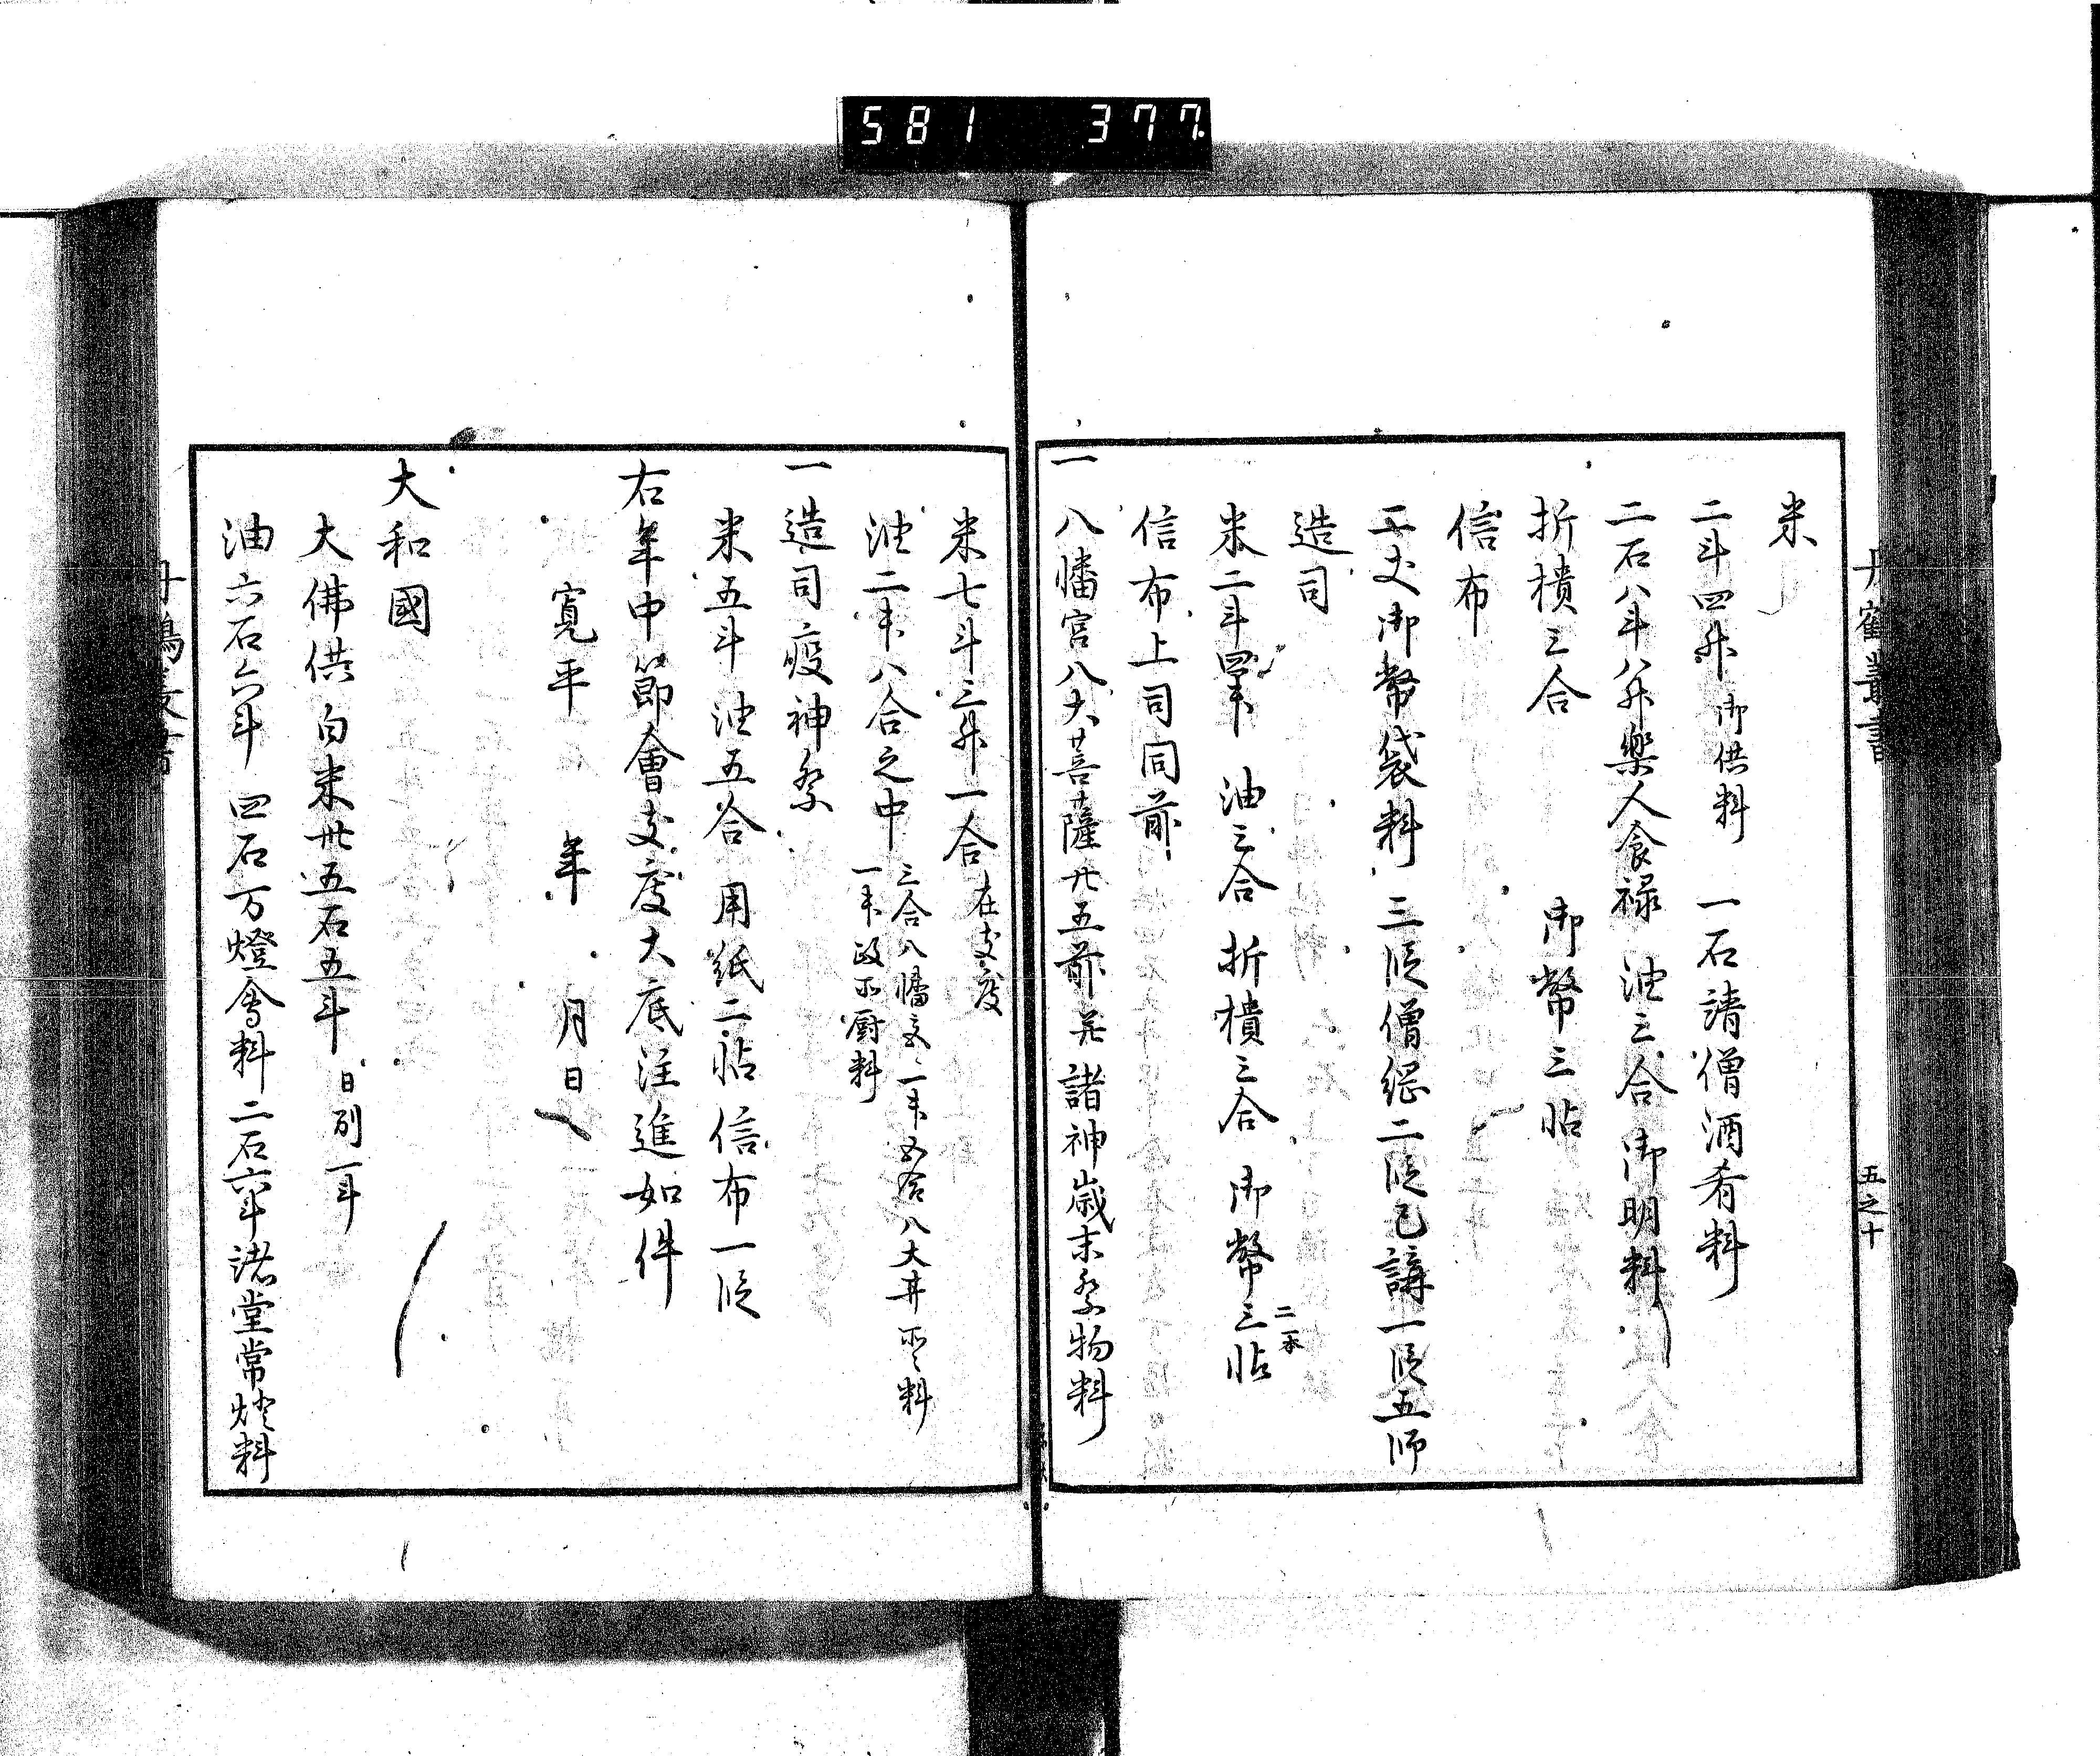 581 377
丹鶴叢書
五之十
米
二斗四升 御供料 一石請僧酒肴料
二石八斗八升樂人食禄 油三合 御明料
折樻三合 御幣三帖
信布
一丈御幣袋料 三段僧綱二段已講一段五師
造司
米二斗四升 油三合 折樻三合 御幣三帖
二本
信布上司同前
一八幡宮八大菩薩廿五前并諸神歳末祭物料
米七斗三升一合 在支度
油二升八合之中
三合八幡
八大井
料
一升政所厨料
一造司疫神祭
米五斗 油五合 用紙二帖 信布一段
右年中節會支度大底注進如件
寛平 年 月 日
大和國
大佛供白米卅五石五斗 日別一斗
油六石六斗 四石万燈會料 二石六斗諸堂常燈料